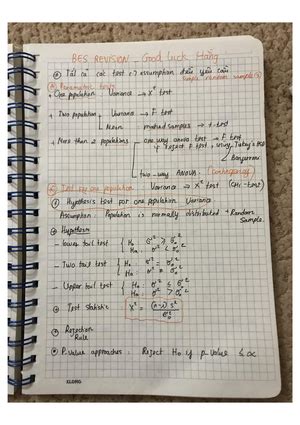 BES REVISION _ Good luck Hằng
Tất cả các test có assumption đều yêu cầu
simple random sample(s)
Parametric tests
+ One population Variance → X² test
+ Two population Variance → F test
Mean matched samples → t-test
+ More than 2 populations one way anova test → F test
if reject F test, using Tukey's HSD
Bonferroni
two-way ANOVA:
Test for one population Variance → X² test (CHI-test)
Hypothesis test for one population Variance
Assumption: Population is normally distributed + Random
Sample
Hypothesis
- lower tail test { H₀ : σ² ≥ σ₀²
Hₐ : σ² < σ₀²
- Two tail test { H₀ : σ² = σ₀²
Hₐ : σ² ≠ σ₀²
- Upper tail test { H₀ : σ² ≤ σ₀²
Hₐ : σ² > σ₀²
Test Statistic X² = (n-1) s² / σ₀²
Rejection
Rule
P. value approaches: Reject H₀ if p-value ≤ α
KLONG